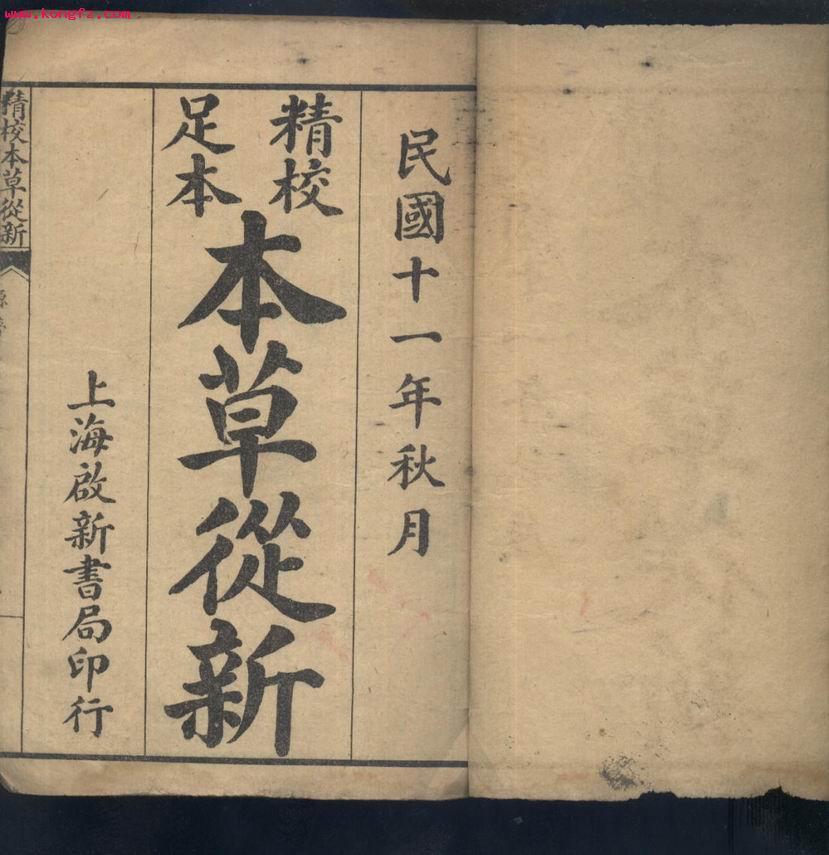 www.kongfz.com
民國十一年秋月
精校
足本
本草從新
上海啟新書局印行
精校本草從新